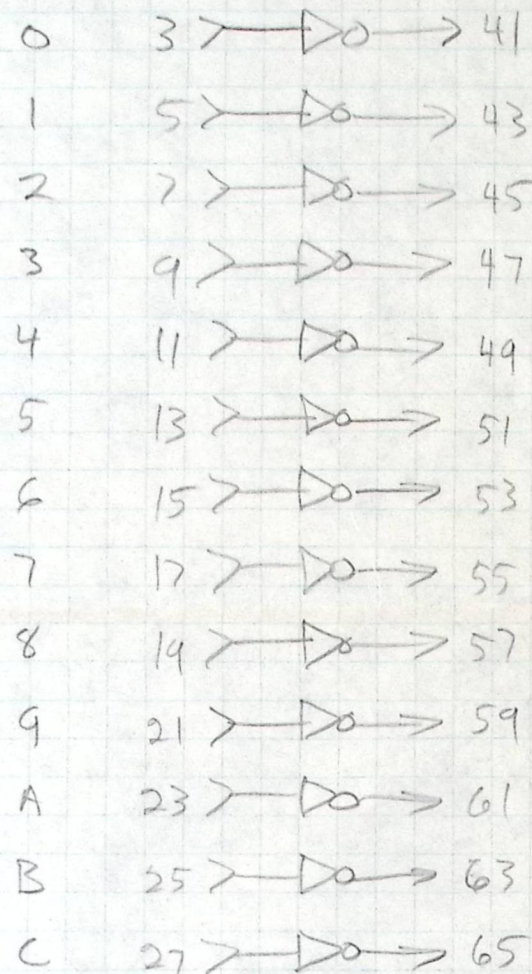 0 3 41
1 5 43
2 7 45
3 9 47
4 11 49
5 13 51
6 15 53
7 17 55
8 19 57
9 21 59
A 23 61
B 25 63
C 27 65